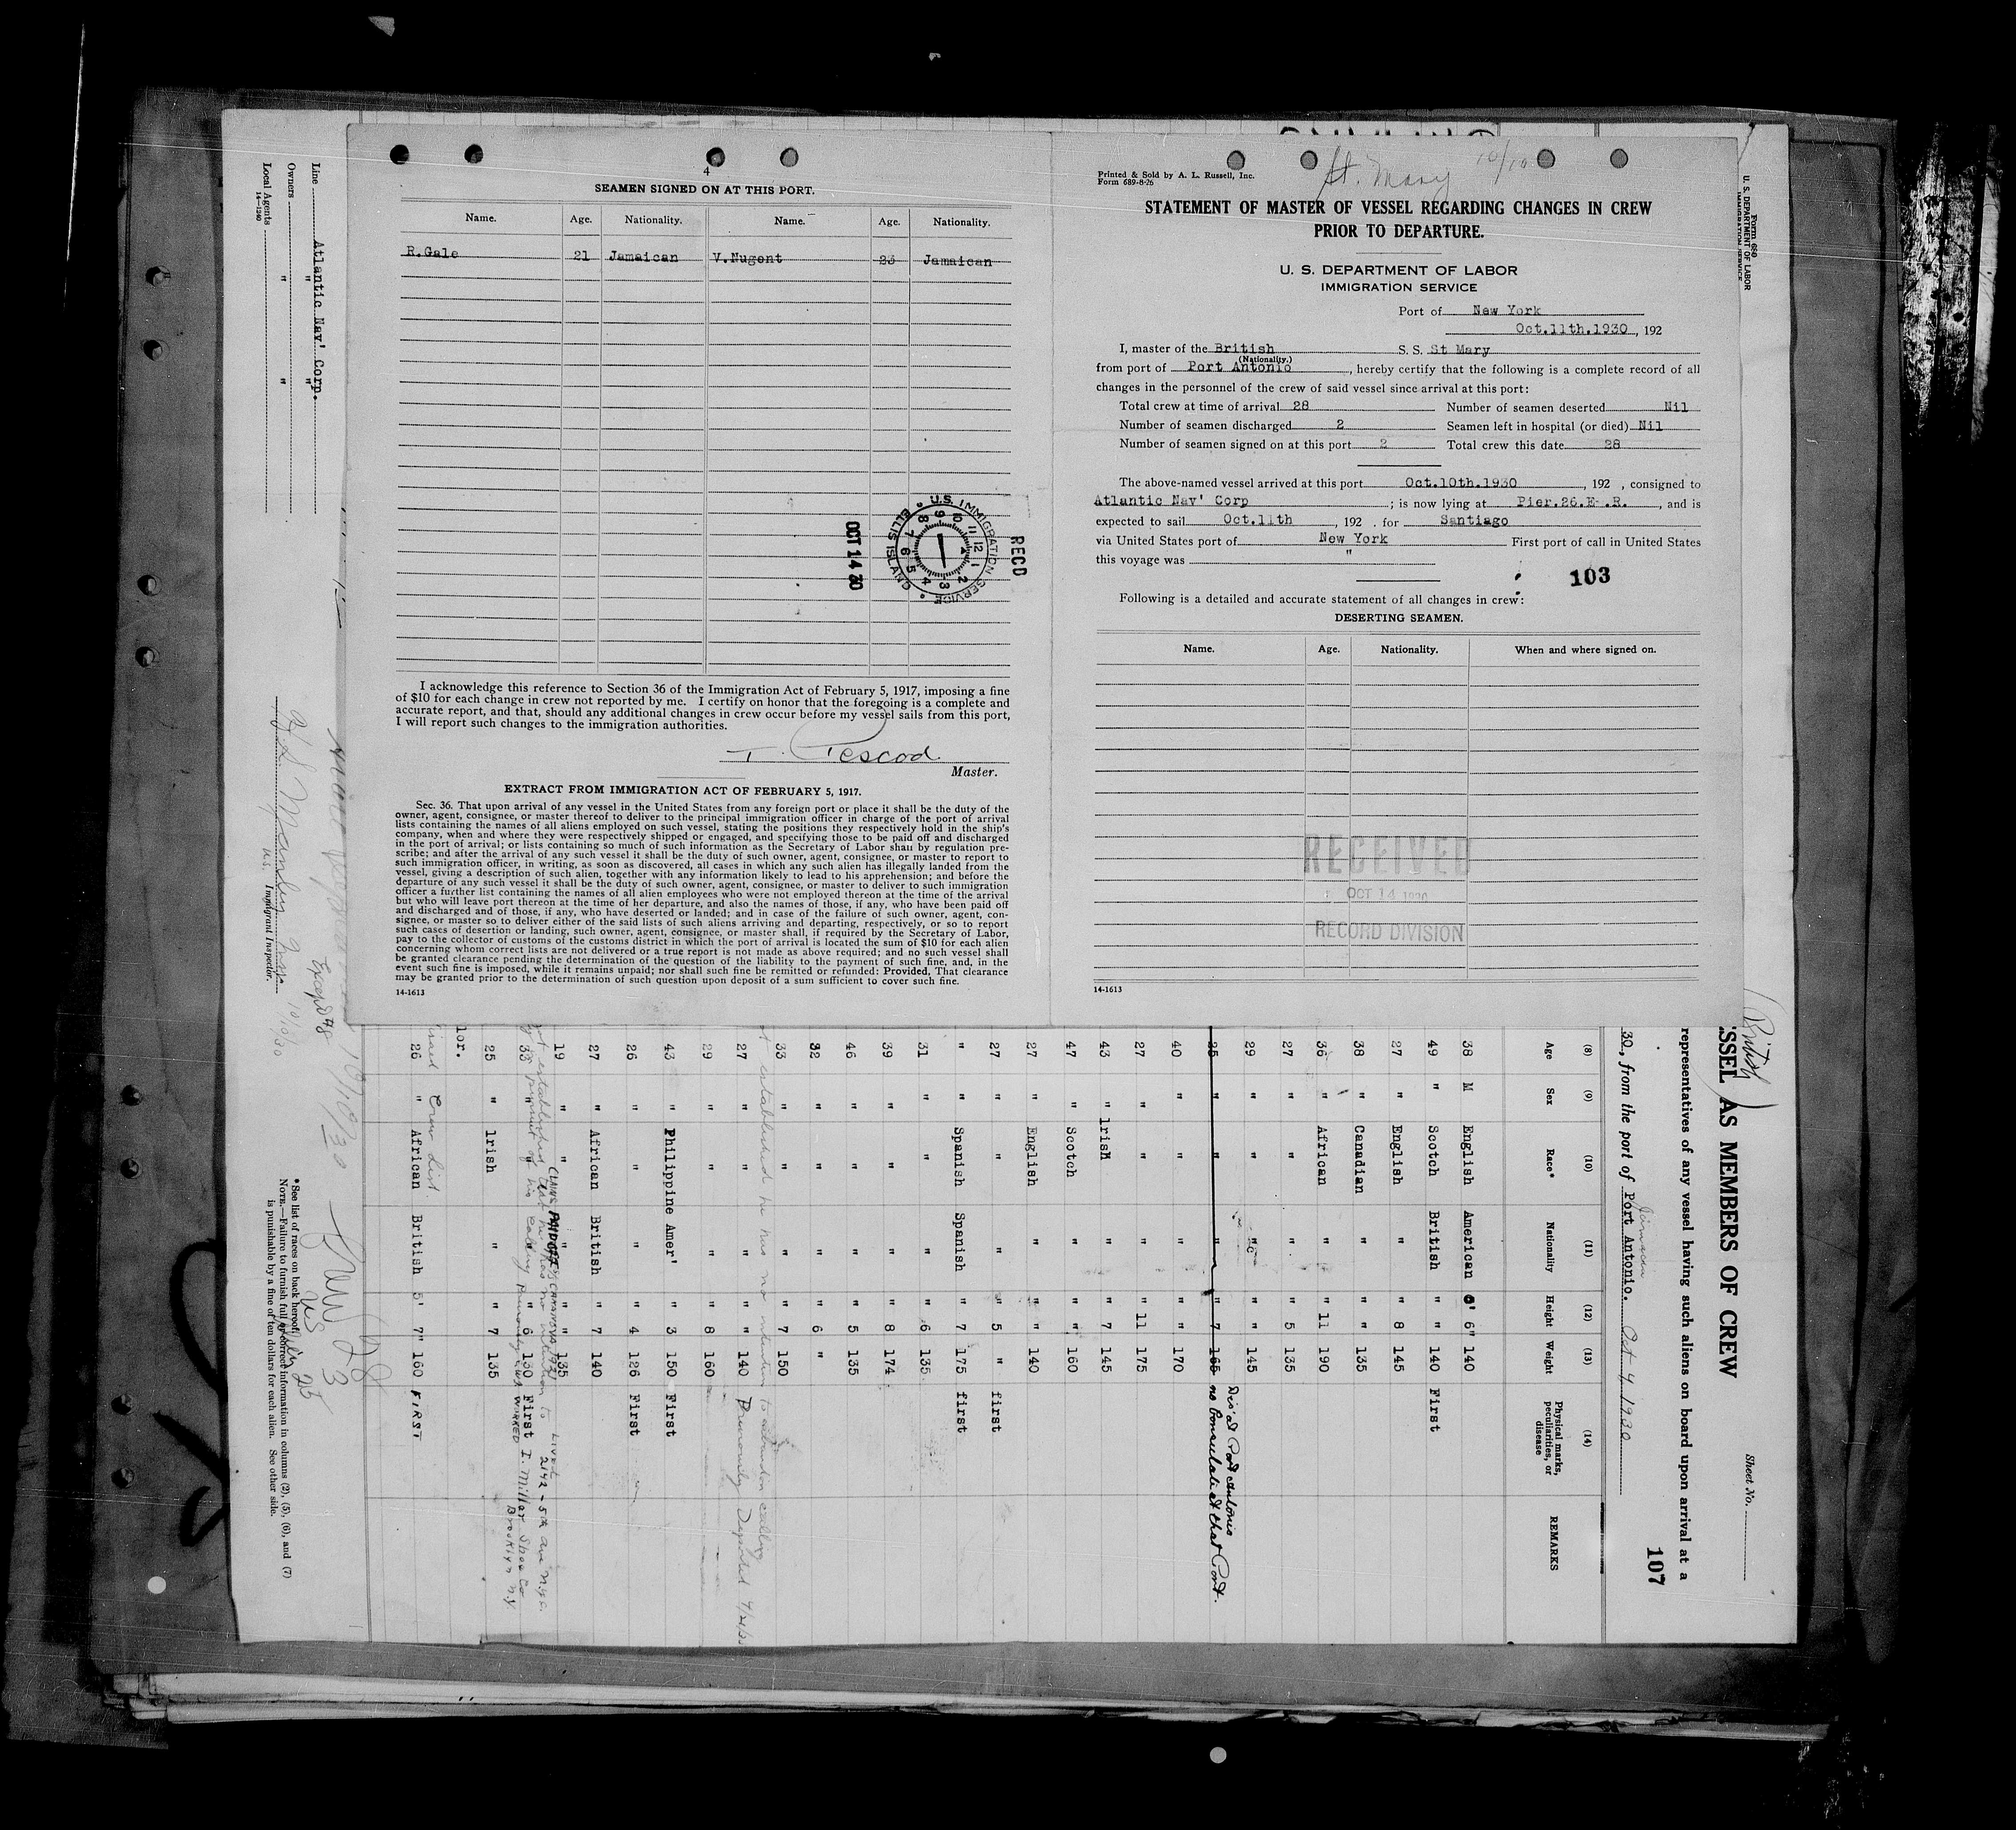 4
SEAMEN SIGNED ON AT THIS PORT.
Name. Age. Nationality. Name. Age. Nationality.
R.Gale 21 Jamaican V.Nugent 23 Jamaican
RECD
U.S. IMMIGRATION SERVICE • ELLIS ISLAND •
OCT 14 30
I acknowledge this reference to Section 36 of the Immigration Act of February 5, 1917, imposing a fine
of $10 for each change in crew not reported by me. I certify on honor that the foregoing is a complete and
accurate report, and that, should any additional changes in crew occur before my vessel sails from this port,
I will report such changes to the immigration authorities.
T. Pescod
Master.
EXTRACT FROM IMMIGRATION ACT OF FEBRUARY 5, 1917.
Sec. 36. That upon arrival of any vessel in the United States from any foreign port or place it shall be the duty of the
owner, agent, consignee, or master thereof to deliver to the principal immigration officer in charge of the port of arrival
lists containing the names of all aliens employed on such vessel, stating the positions they respectively hold in the ship's
company, when and where they were respectively shipped or engaged, and specifying those to be paid off and discharged
in the port of arrival; or lists containing so much of such information as the Secretary of Labor shall by regulation pre-
scribe; and after the arrival of any such vessel it shall be the duty of such owner, agent, consignee, or master to report to
such immigration officer, in writing, as soon as discovered, all cases in which any such alien has illegally landed from the
vessel, giving a description of such alien, together with any information likely to lead to his apprehension; and before the
departure of any such vessel it shall be the duty of such owner, agent, consignee, or master to deliver to such immigration
officer a further list containing the names of all alien employees who were not employed thereon at the time of the arrival
but who will leave port thereon at the time of her departure, and also the names of those, if any, who have been paid off
and discharged and of those, if any, who have deserted or landed; and in case of the failure of such owner, agent, con-
signee, or master so to deliver either of the said lists of such aliens arriving and departing, respectively, or so to report
such cases of desertion or landing, such owner, agent, consignee, or master shall, if required by the Secretary of Labor,
pay to the collector of customs of the customs district in which the port of arrival is located the sum of $10 for each alien
concerning whom correct lists are not delivered or a true report is not made as above required; and no such vessel shall
be granted clearance pending the determination of the question of the liability to the payment of such fine, and, in the
event such fine is imposed, while it remains unpaid; nor shall such fine be remitted or refunded: Provided, That clearance
may be granted prior to the determination of such question upon deposit of a sum sufficient to cover such fine.
14-1613
Printed & Sold by A. L. Russell, Inc.
Form 689-8-26
St. Mary 10/10
STATEMENT OF MASTER OF VESSEL REGARDING CHANGES IN CREW
PRIOR TO DEPARTURE.
U. S. DEPARTMENT OF LABOR
IMMIGRATION SERVICE
Port of New York
Oct.11th.1930, 192
I, master of the British S. S. St Mary
(Nationality.)
from port of Port Antonio, hereby certify that the following is a complete record of all
changes in the personnel of the crew of said vessel since arrival at this port:
Total crew at time of arrival 28 Number of seamen deserted Nil
Number of seamen discharged 2 Seamen left in hospital (or died) Nil
Number of seamen signed on at this port 2 Total crew this date 28
The above-named vessel arrived at this port Oct.10th.1930, 192 , consigned to
Atlantic Nav' Corp; is now lying at Pier.26.E.R., and is
expected to sail Oct.11th, 192 . for Santiago
via United States port of New York First port of call in United States
this voyage was "
103
Following is a detailed and accurate statement of all changes in crew:
DESERTING SEAMEN.
Name. Age. Nationality. When and where signed on.
RECEIVED
OCT 14 1930
RECORD DIVISION
14-1613
Form 689
U. S. DEPARTMENT OF LABOR
IMMIGRATION SERVICE
(British)
Sheet No.
SSEL AS MEMBERS OF CREW
representatives of any vessel having such aliens on board upon arrival at a
107
Jamaica
30, from the port of Port Antonio. Oct 4 1930
(8) (9) (10) (11) (12) (13) (14)
Age Sex Race* Nationality Height Weight Physical marks, peculiarities, or disease REMARKS
38 M English American 6' 6" 140
49 " Scotch British " " 140 First
27 " English " " 8 145
38 " Canadian " " " 135
36 " African " " 11 190
27 " " " " 5 135
29 " " " " " 145
25 " " " " 7 155 Dis'd at Port Antonio
no Consulate at that Port.
40 " " " " " 170
27 " " " " 11 175
43 " Irish " " 7 145
47 " Scotch " " " 160
27 " English " " " 140
27 " " " " 5 " first
" " Spanish Spanish " 7 175 first
31 " " " " 6 135
39 " " " " 8 174
46 " " " " 5 135
32 " " " " 6 "
33 " " " " 7 150
established he has no intention to abandon calling
27 " " " " " 140 Permanently Deported
29 " " " " 8 160
43 " Philippine Amer' " 3 150 First
26 " " " " 4 126 First
27 " African British " 7 140
19 " " " " " 135
PAID OFF
LIVED 2142 - 5th Ave N.Y.C.
33 " " " " 6 130 First
WORKED I. Miller Shoe Co
Brooklyn N.Y.
25 " Irish " " 7 135
lor.
Crew List
26 " African British 5' 7" 160 FIRST
Line Atlantic Nav' Corp.
Owners " "
Local Agents
14-1240
Except #8
10/10/30
U.S. Immigrant Inspector.
10/10/30
* See list of races on back hereof.
NOTE.—Failure to furnish full or correct information in columns (2), (5), (6), and (7)
is punishable by a fine of ten dollars for each alien. See other side.